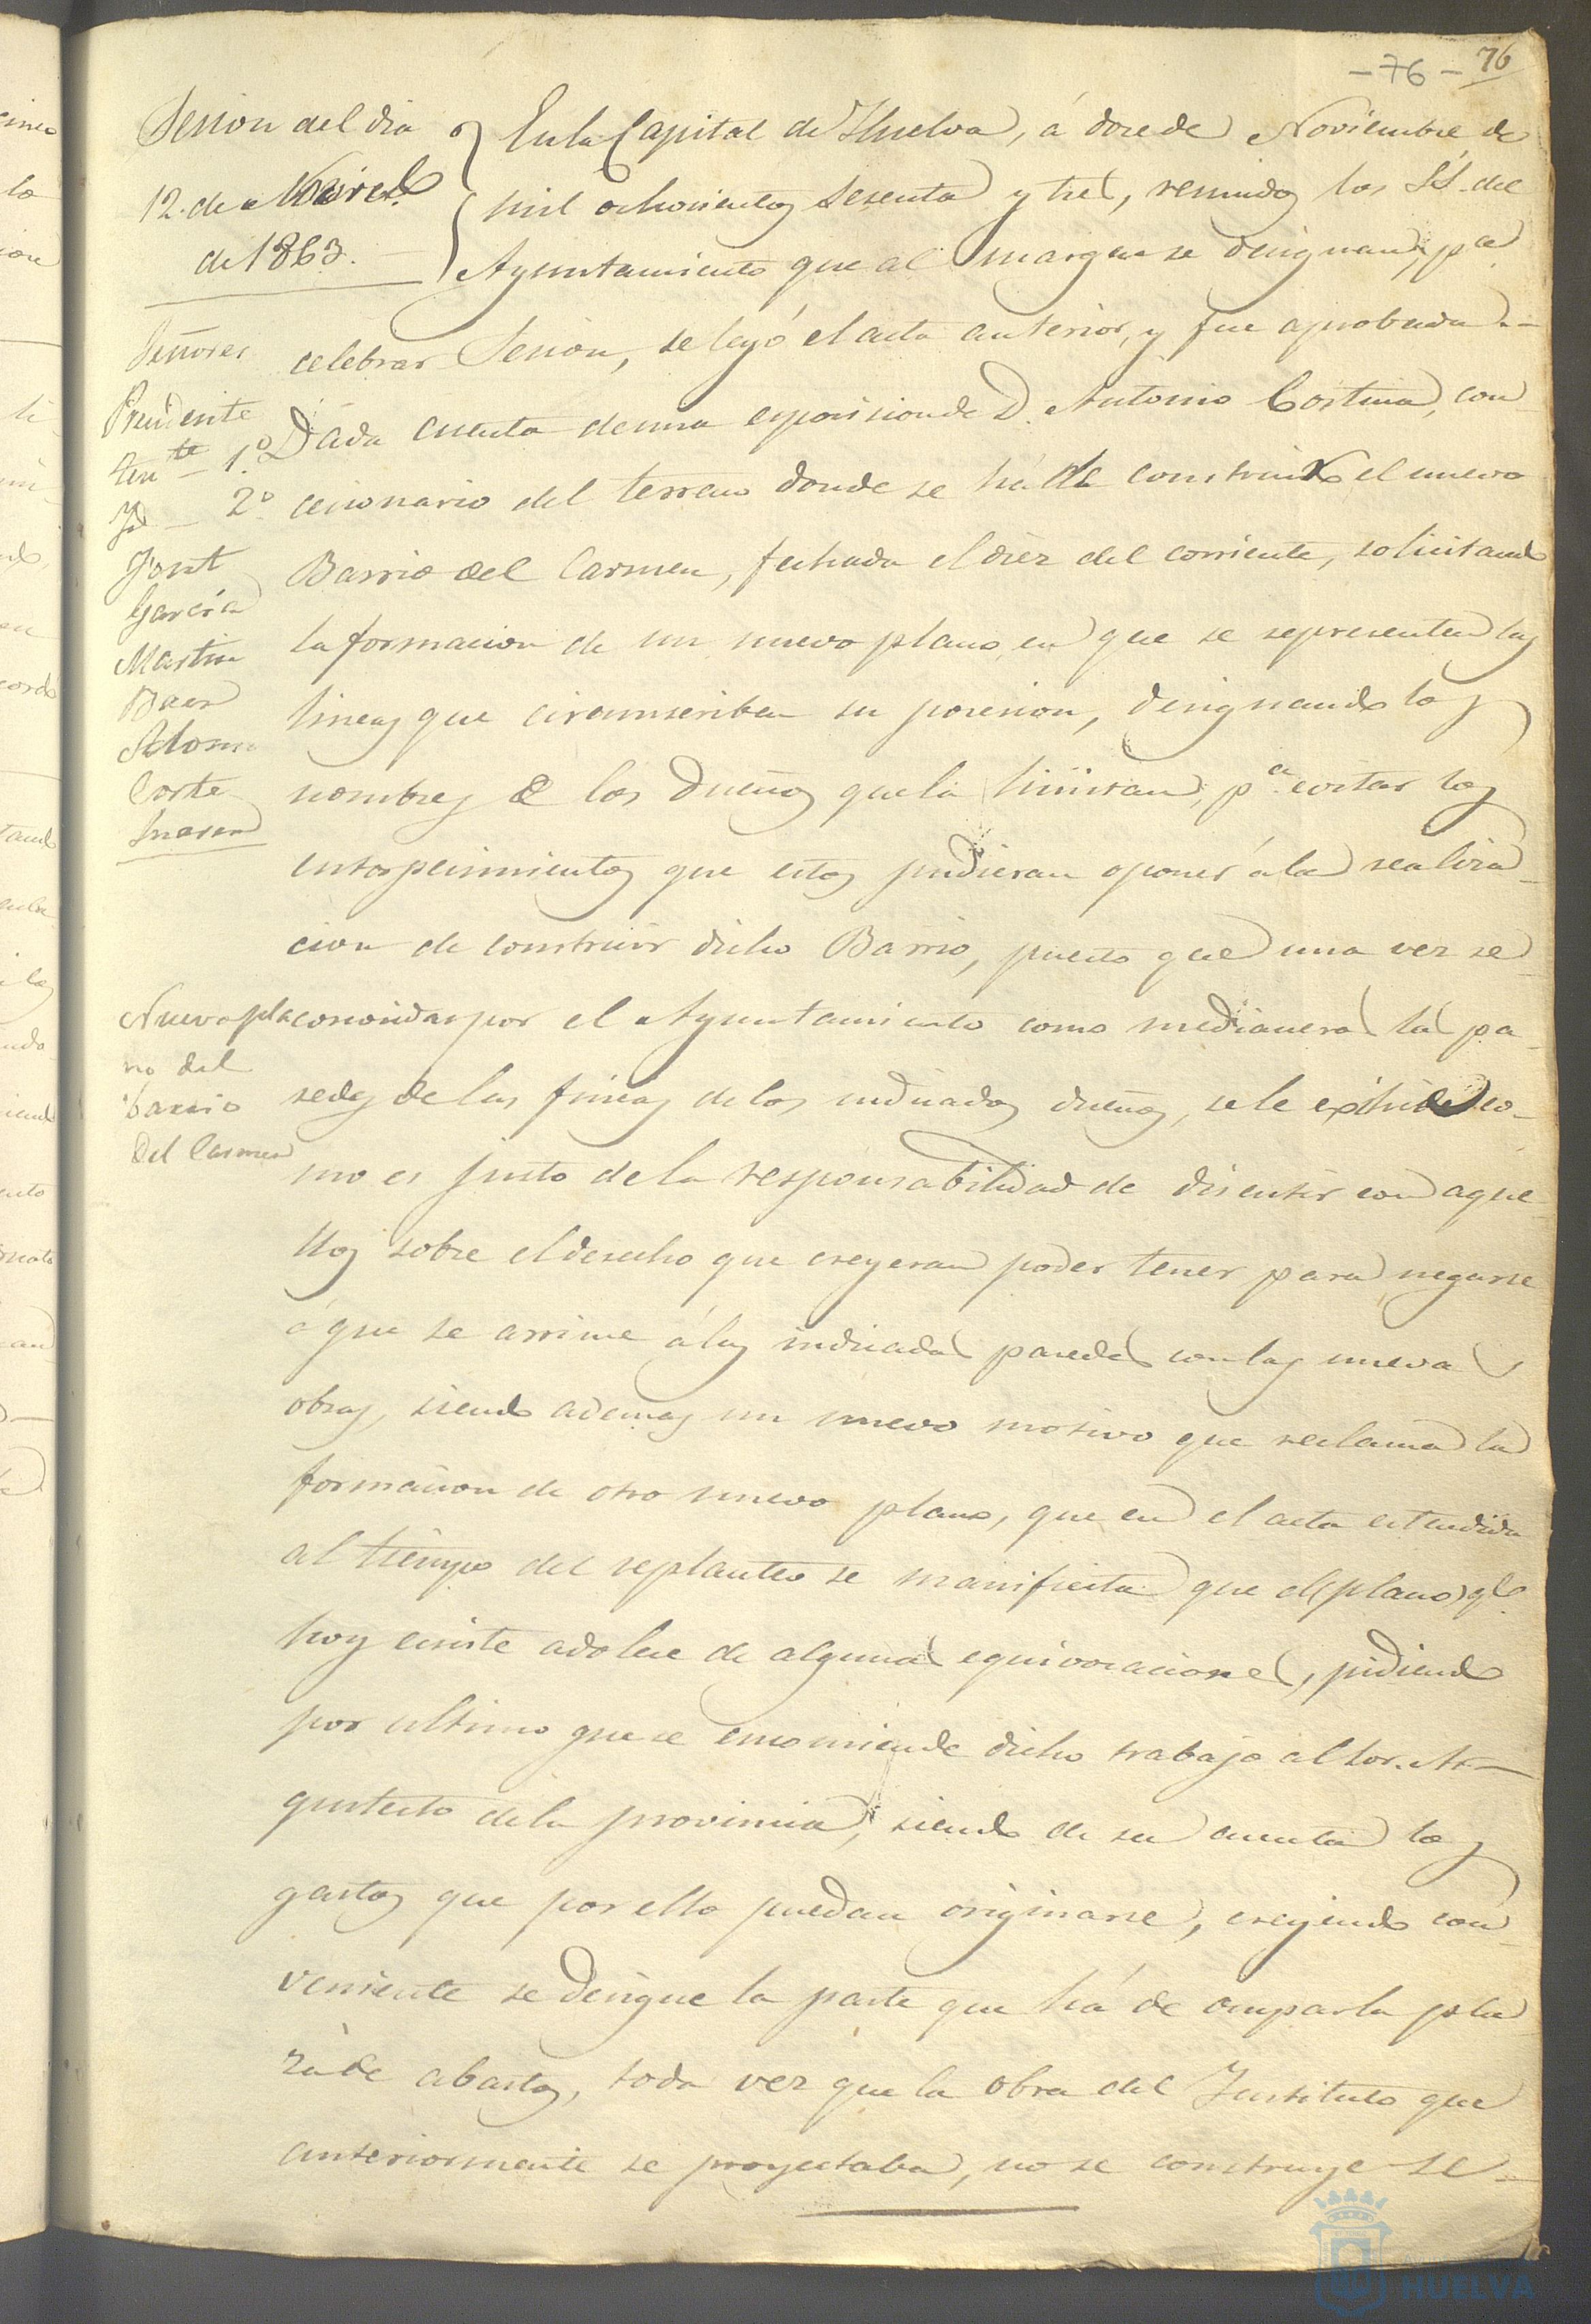 - 76 - 76
Sesion del dia
12. de Novre.
de 1863.
En la Capital de Huelva, á doce de Noviembre de
mil ochocientos sesenta y tres, reunidos los SS. del
Ayuntamiento que al margen se designan, pa.
celebrar Sesion, se leyó el acta anterior, y fue aprobada.-
Señores
Presidente
tente 1.º
Id - 2.º
Font
García
Martin
Baez
Corte
Dada cuenta de una esposision de D. Antonio Cortina, con
cesionario del terreno donde se há de construir el nuevo
Barrio del Carmen, fechada el diez del corriente, solicitando
la formacion de un nuevo plano en que se representen las
lineas que circunscriben su posesion, designando los
nombres de los Dueños que la limitan, pa. evitar los
entorpecimientos que estos pudieran oponer á la realiza-
cion de construir dicho Barrio, puesto que una vez re-
conocidas por el Ayuntamiento como medianeras las pa-
redes de las fincas de los indicados dueños, se le exhime co-
mo es justo de la responsabilidad de discutir con aque-
llos sobre el derecho que creyeran poder tener para negarse
á que se arrime á las indicadas paredes con las nuevas
obras, siendo ademas un nuevo motivo que reclama la
formacion de otro nuevo plano, que en el acta estendida
al tiempo del replanteo se manifiesta que el (plano) qe.
hoy ecsiste adolece de algunas equivocaciones, pidiendo
por ultimo que se encomiende dicho trabajo al Sor. Ar-
quitecto de la provincia, siendo de su cuenta los
gastos que por ello puedan originarse, creyendo con-
veniente se designe la parte que há de ocupar la pla
za de abastos, toda vez que la obra del Instituto que
anteriormente se proyectaba, no se construye se-
Nuevo pla
no del
barrio
del Carmen
HUELVA